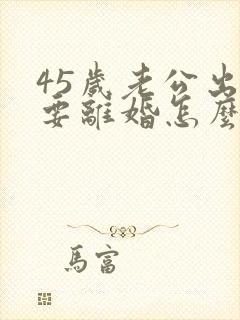 45歲老公出
要離婚怎麼
馬富